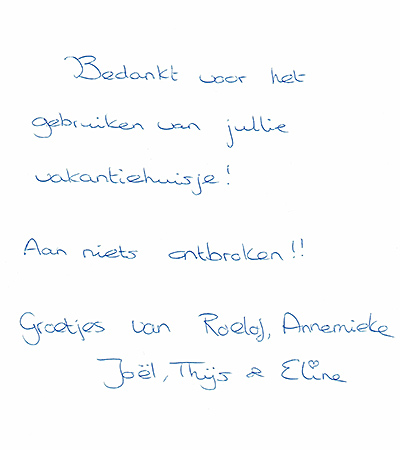 Bedankt voor het
gebruiken van jullie
vakantiehuisje!
Aan niets ontbroken!!
Groetjes van Roelof, Annemieke
Joël, Thijs & Eline